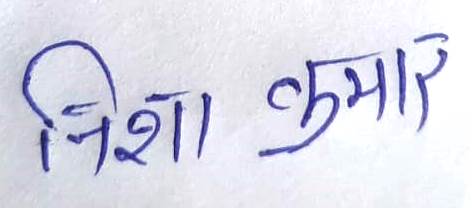 निशा कुमार